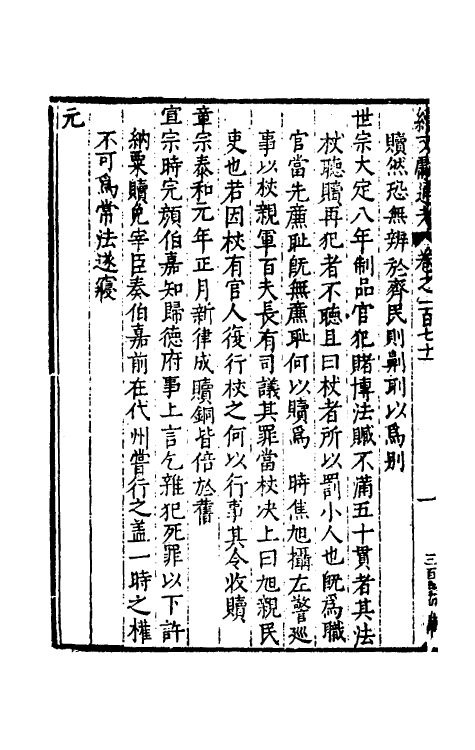 續文獻通考 卷之一百七十 一
贖然恐無辨於齊民則劓刵以爲别
世宗大定八年制品官犯賭博法贓不滿五十貫者其法
杖聽贖再犯者不聽且曰杖者所以罰小人也旣爲職
官當先廉耻旣無廉耻何以贖爲 時焦旭攝左警廵
事以杖親軍百夫長有司議其罪當杖决上曰旭親民
吏也若因杖有官人復行杖之何以行事其令收贖
章宗泰和元年正月新律成贖銅皆倍於舊
宣宗時完顔伯嘉知歸德府事上言乞雜犯死罪以下許
納粟贖免宰臣奏伯嘉前在代州嘗行之盖一時之權
不可爲常法遂寢
元